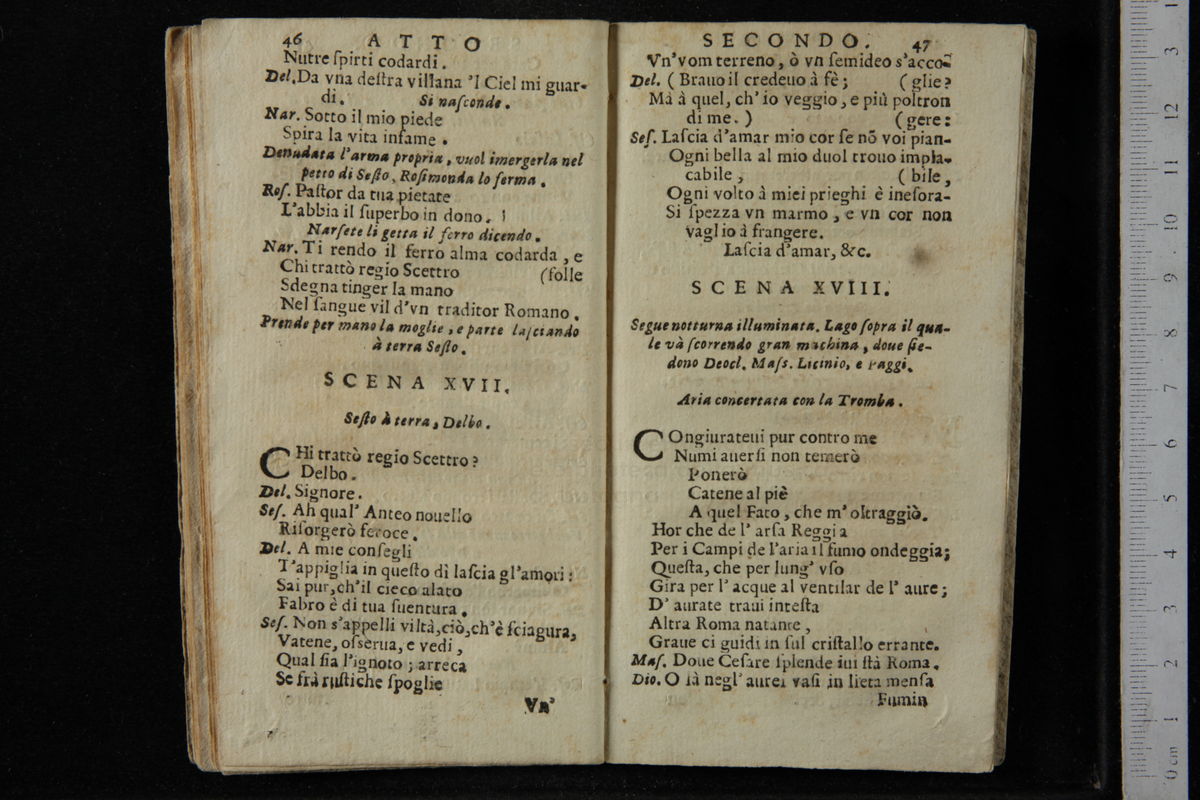 46 ATTO
Nutre ſpirti codardi.
Del. Da vna deſtra villana 'l Ciel mi guar-
di. Si naſconde.
Nar. Sotto il mio piede
Spira la vita infame.
Denudata l'arma propria, vuol imergerla nel
petto di Seſto, Roſimonda lo ferma.
Roſ. Paſtor da tua pietate
L'abbia il ſuperbo in dono.
Narſete li getta il ferro dicendo.
Nar. Ti rendo il ferro alma codarda, e
Chi trattò regio Scettro (folle
Sdegna tinger la mano
Nel ſangue vil d'vn traditor Romano.
Prende per mano la moglie, e parte laſciando
à terra Seſto.
SCENA XVII.
Seſto à terra, Delbo.
CHi trattò regio Scettro?
Delbo.
Del. Signore.
Seſ. Ah qual' Anteo nouello
Riſorgerò feroce.
Del. A mie conſegli
T'appiglia in queſto dì laſcia gl'amori:
Sai pur, ch'il cieco alato
Fabro è di tua ſuentura.
Seſ. Non s'appelli viltà, ciò, ch'è ſciagura,
Vatene, oſſerua, e vedi,
Qual ſia l'ignoto; arreca
Se frà ruſtiche ſpoglie
Vn'
SECONDO. 47
Vn' vom terreno, ò vn ſemideo s'acco-
Del. (Brauo il credeuo à fè; (glie?
Mà à quel, ch' io veggio, e più poltron
di me.) (gere:
Seſ. Laſcia d'amar mio cor ſe nõ voi pian-
Ogni bella al mio duol trouo impla-
cabile, (bile,
Ogni volto à miei prieghi è ineſora-
Si ſpezza vn marmo, e vn cor non
vaglio à frangere.
Laſcia d'amar, &c.
SCENA XVIII.
Segue notturna illuminata. Lago ſopra il qua-
le và ſcorrendo gran machina, doue ſie-
dono Deocl. Maſs. Licinio, e Paggi.
Aria concertata con la Tromba.
COngiurateui pur contro me
Numi auerſi non temerò
Ponerò
Catene al piè
A quel Fato, che m' oltraggiò.
Hor che de l' arſa Reggia
Per i Campi de l'aria il fumo ondeggia;
Queſta, che per lung' vſo
Gira per l' acque al ventilar de l' aure;
D' aurate traui inteſta
Altra Roma natante,
Graue ci guidi in ſul criſtallo errante.
Maſ. Doue Ceſare ſplende iui ſtà Roma.
Dio. O là negl' aurei vaſi in lieta menſa
Fumin
0 cm 1 2 3 4 5 6 7 8 9 10 11 12 13 1